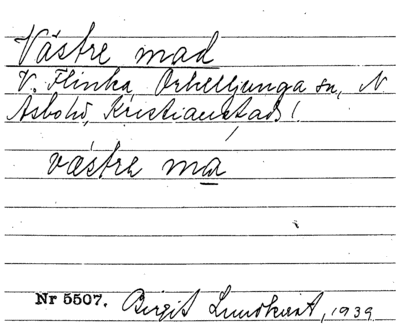 Västre mad
V. Flinka, Örkelljunga sn, N
Åsbohd, Kristianstads l
västre ma
Nr 5507. Birgit Lundkvist, 1939